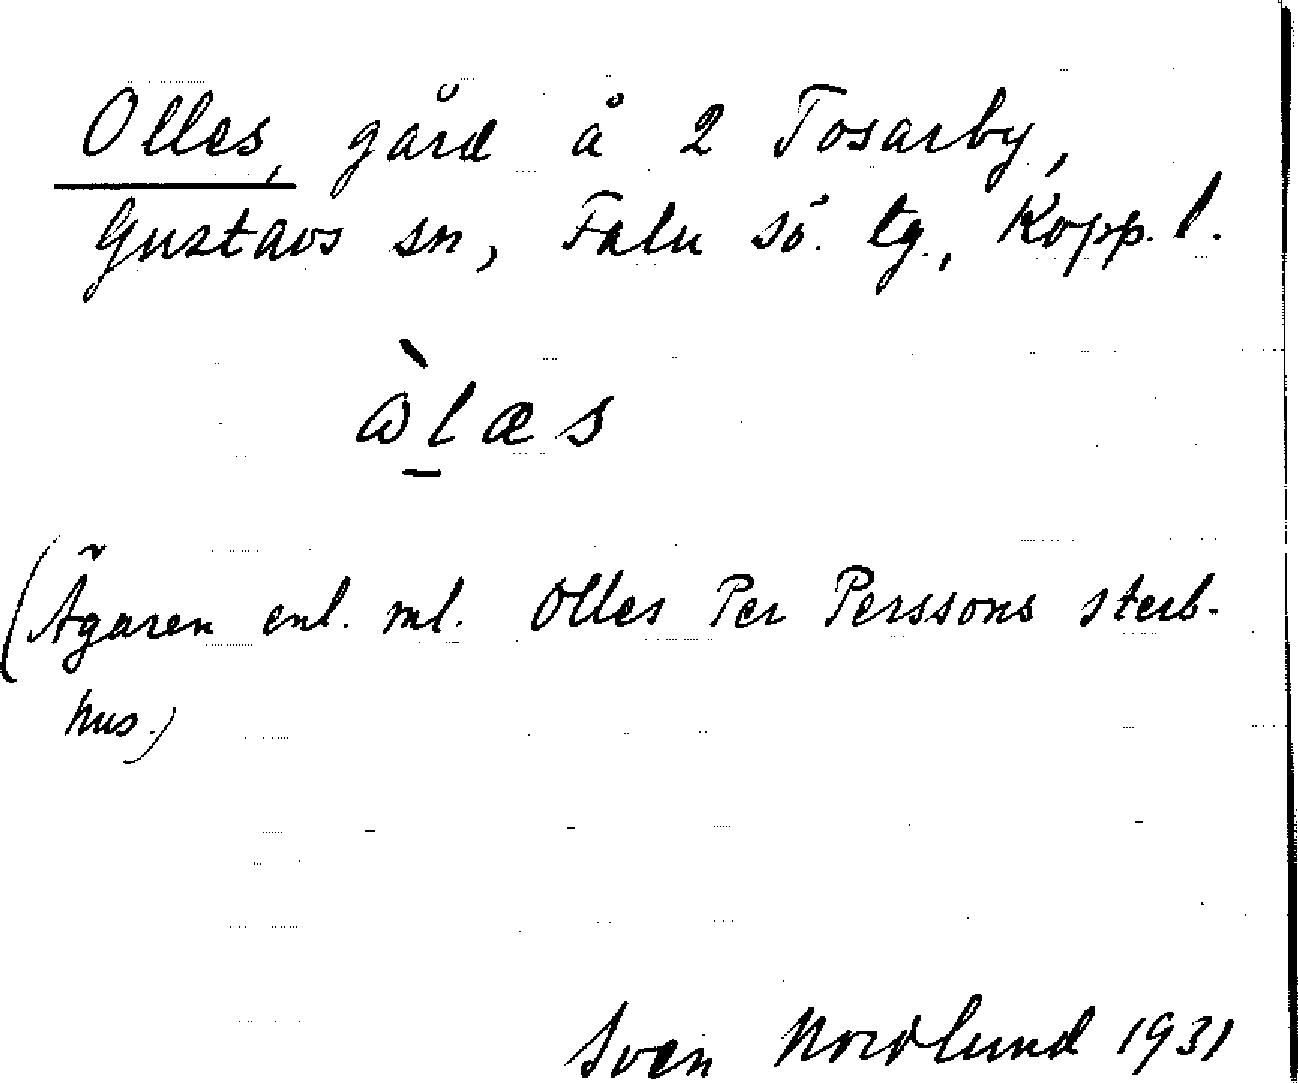 Olles, gård å 2 Tosarby,
Gustavs sn, Falu sö. tg., Kopp. l.
(Ägaren enl. ml. Olles Per Perssons sterb-
hus.)
Sven Nordlund 1931